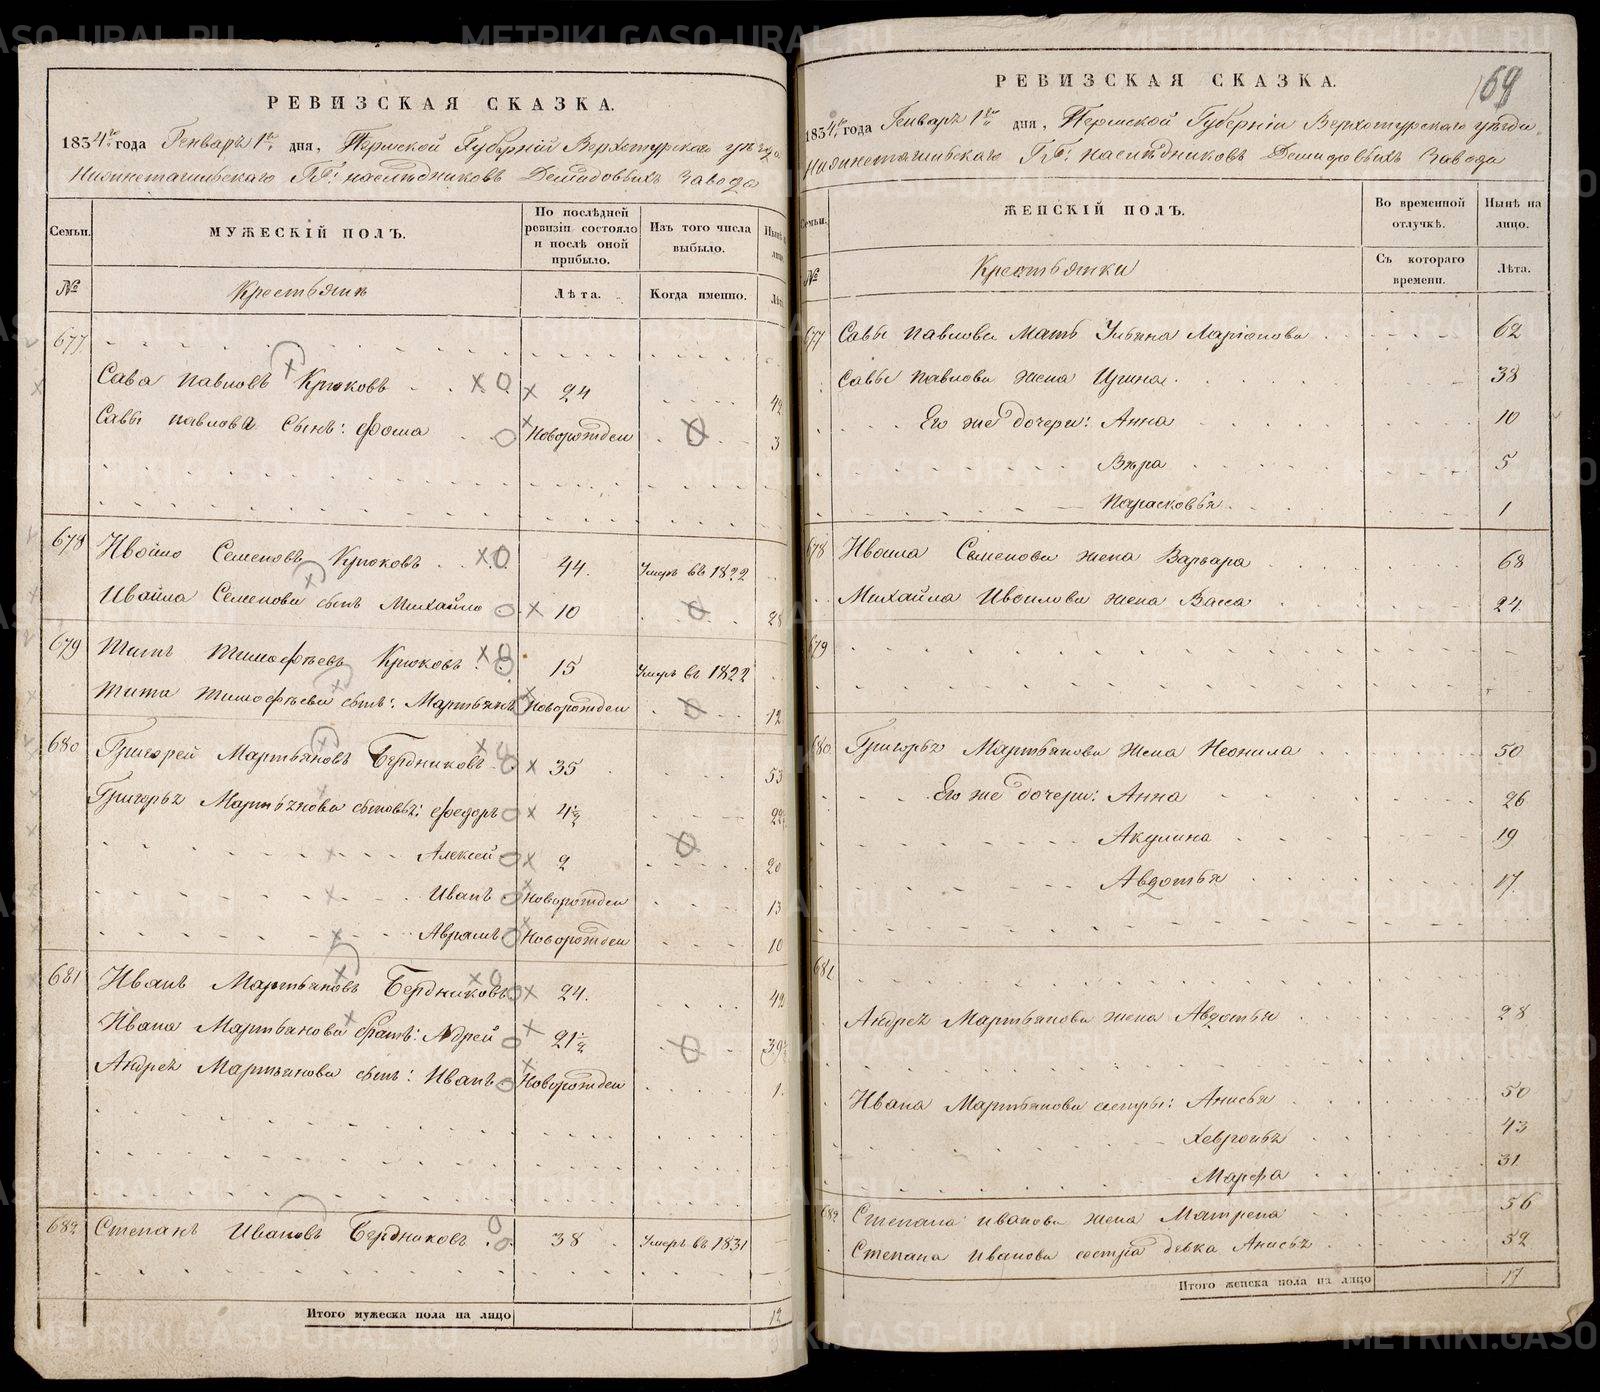 РЕВИЗСКАЯ СКАЗКА.
1834го года Генваря 1го дня, Пермской Губерніи Верхотурского уѣзда
Нижнетагильскаго ГГ: наслѣдниковъ Демидовыхъ Завода
Семьи. МУЖЕСКІЙ ПОЛЪ. По послѣдней ревизіи состояло и послѣ оной прибыло. Изъ того числа выбыло.
№ Крестьянъ Лѣта. Когда именно.
677
Сава Павловъ Крюковъ 24 42
Савы Павлова сынъ: Фома Новорожден 3
678 Ивойло Семеновъ Крюковъ 44. Умеръ въ 1822
Ивойла Семенова сынъ Михайло 10 28
679 Титъ Тимофѣевъ Крюковъ 15 Умеръ въ 1822
Тита Тимофѣева сынъ: Мартьянъ Новорожден 12
680 Григорей Мартьяновъ Бердниковъ 35 53
Григорья Мартьянова сыновья: Федоръ 4½ 22½
Алексей 2 20
Иванъ Новорожден 13
Аврамъ Новорожден 10
681 Иванъ Мартьяновъ Бердниковъ 24. 42
Ивана Мартьянова братъ: Андрей 21½ 39½
Андрея Мартьянова сынъ: Иванъ Новорожден 1.
682 Степанъ Ивановъ Бердниковъ 38 Умеръ въ 1831
Итого мужеска пола на лицо 12
169
РЕВИЗСКАЯ СКАЗКА.
1834го года Генваря 1го дня, Пермской Губерніи Верхотурскаго уѣзда,
Нижнетагильскаго ГГ: наслѣдниковъ Демидовыхъ Завода
Семьи. ЖЕНСКІЙ ПОЛЪ. Во временной отлучкѣ. Нынѣ на лицо.
№ Крестьянки Съ котораго времени. Лѣта.
677 Савы Павлова мать Ульяна Ларіонова 62
Саввы Павлова жена Ирина 38
Его же дочери: Анна 10
Вѣра 5
Парасковья 1
678 Ивойла Семенова жена Варвара 68
Михайла Ивойлова жена Васса 24
679
680 Григорья Мартьянова жена Неонила 50
Его же дочери: Анна 26
Акулина 19
Авдотья 17.
681
Андрея Мартьянова жена Авдотья 28
Ивана Мартьянова сестры: Анисья 50
Хевронья 43
Марфа 31
682 Степана Иванова жена Матрена 56
Степана Иванова сестра девка Анисья 52
Итого женска пола на лицо 17
METRIKI.GASO-URAL.RU